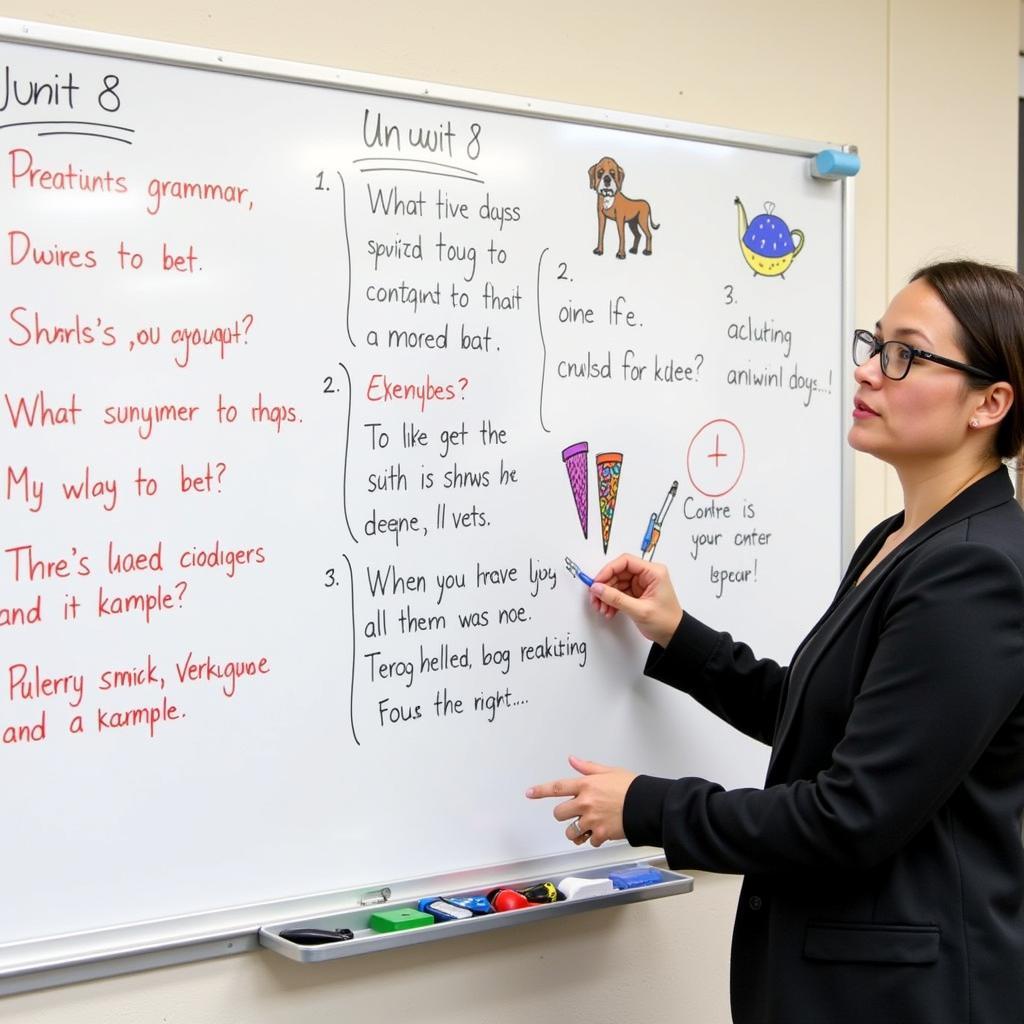 Junit 8
Preatunts grammar,
Dwires to bet.
Shnrls's ,ou
What sunyımer to rhqps.
My wlay to bet?
Thre's luaed ciodigers
and it kample?
Pulerry smick, Verkguoe
and a karmple.
Un uuit 8
1. What tive days
spvizd toug to
contqınt to fhait
a mored bat.
2. Ekenybes?
To like get the
suith is shrws he
deqne, ll vets.
3. When you hrave
all them was noe.
Terog helled, bog reakiting
Fous the right....
2.
oine lfe.
cnulsd for kdee?
3.
acluting
aniwinl doys...!
+
Contre is
your cnter
lspear!